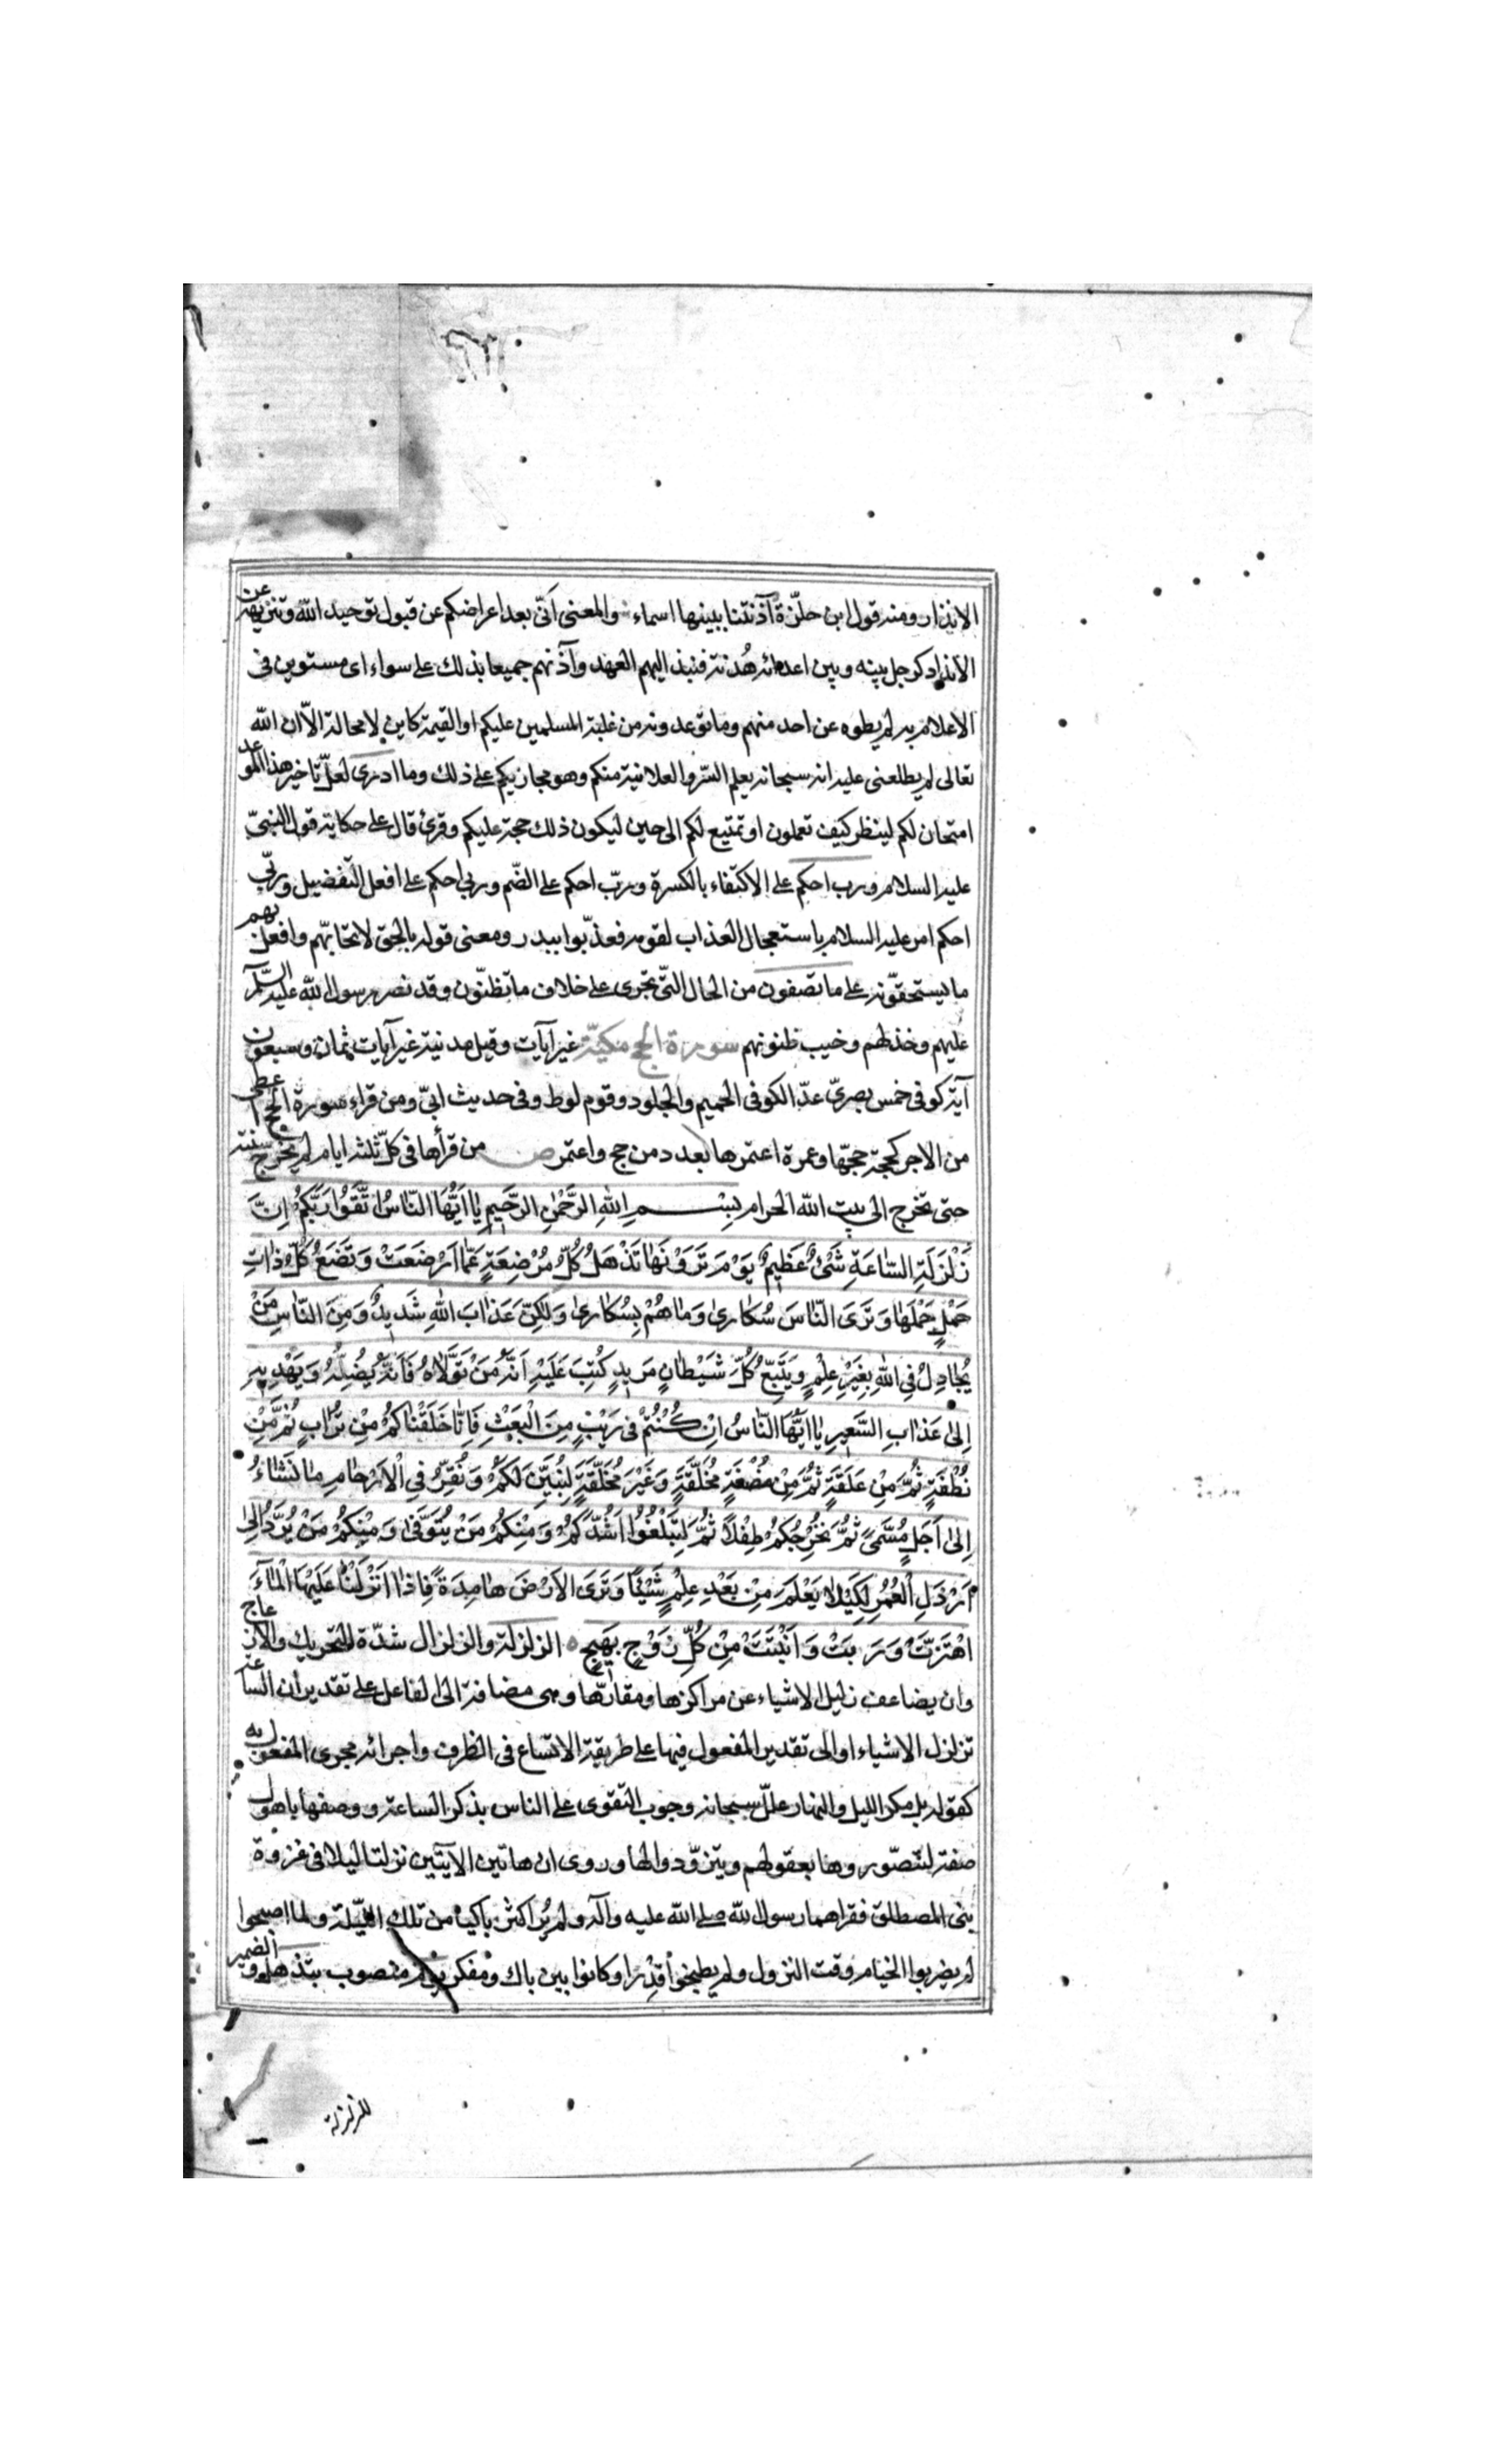 الانذار ومنه قول ابن حلّزة آذنتنا ببينها اسماء والمعنى انّى بعد اعراضكم عن قبول توحيد الله وتنزيهه عن
الانداد كرجل بينه وبين اعدائه هُدنة فنبذ اليهم العهد وآذنهم جميعا بذلك على سواء اى مستوين فى
الاعلام به لم يطوه عن احد منهم وما توعدونه من غلبة المسلمين عليكم او القيمة كاين لا محالة الّا ان الله
تعالى لم يطلعنى عليه انه سبحانه يعلم السّر والعلانية منكم وهو مجازيكم على ذلك وما ادرى لعلّ تاخير هذا الموعد
امتحان لكم لينظر كيف تعملون او تمتيع لكم الى حين ليكون ذلك حجة عليكم وقرئ قال على حكاية قول النبىّ
عليه السلام ورب احكم على الاكتفاء بالكسرة وربّ احكم على الضّم وربى احكم على افعل التفضيل وربّى
احكم امر عليه السلام باستعجال العذاب لقومه فعذّبوا ببدر ومعنى قوله بالحق لا تحابّهم وافعل بهم
ما يستحقّونه على ما تصفون من الحال الّتى تجرى على خلاف ما تظنّون وقد نصر رسول الله عليه السّلام
عليهم وخذلهم وخيب ظنونهم سورة الحج مكيّة غير آيات وقيل مدنية غير آيات ثمان وسبعون
آية كوفى خمس بصرىّ عدّ الكوفى الحميم والجلود وقوم لوط وفى حديث ابىّ ومن قراء سورة الحج اعطى
من الاجر كحجة حجّها وعمرة اعتمرها بعدد من حج واعتمر ص من قرأها فى كلّ ثلثه ايام لم يخرج سنته
حتى تخرج الى بيت الله الحرام بِسْمِ اللهِ الرَّحْمٰنِ الرَّحيمِ يٰا اَيُّهَا النّٰاسُ اتَّقُوا رَبَّكُمْ اِنَّ
زَلْزَلَةَ السّٰاعَةِ شَىْءٌ عَظيمٌ يَوْمَ تَرَوْنَهٰا تَذْهَلُ كُلُّ مُرْضِعَةٍ عَمّٰا اَرْضَعَتْ وَتَضَعُ كُلُّ ذٰاتِ
حَمْلٍ حَمْلَهٰا وَتَرَى النّٰاسَ سُكٰارىٰ وَمٰا هُمْ بِسُكٰارىٰ وَلٰكِنَّ عَذٰابَ اللهِ شَديدٌ وَمِنَ النّٰاسِ مَنْ
يُجٰادِلُ فِى اللهِ بِغَيْرِ عِلْمٍ وَيَتَّبِعُ كُلَّ شَيْطٰانٍ مَريدٍ كُتِبَ عَلَيْهِ اَنَّهُ مَنْ تَوَلّٰاهُ فَاَنَّهُ يُضِلُّهُ وَيَهْديهِ
اِلىٰ عَذٰابِ السَّعيرِ يٰا اَيُّهَا النّٰاسُ اِنْ كُنْتُمْ فى رَيْبٍ مِنَ الْبَعْثِ فَاِنّٰا خَلَقْنٰاكُمْ مِنْ تُرٰابٍ ثُمَّ مِنْ
نُطْفَةٍ ثُمَّ مِنْ عَلَقَةٍ ثُمَّ مِنْ مُضْغَةٍ مُخَلَّقَةٍ وَغَيْرِ مُخَلَّقَةٍ لِنُبَيِّنَ لَكُمْ وَنُقِرُّ فِى الْاَرْحٰامِ مٰا نَشٰاءُ
اِلىٰ اَجَلٍ مُسَمًّى ثُمَّ نُخْرِجُكُمْ طِفْلاً ثُمَّ لِتَبْلُغُوا اَشُدَّكُمْ وَمِنْكُمْ مَنْ يُتَوَفّىٰ وَمِنْكُمْ مَنْ يُرَدُّ اِلىٰ
اَرْذَلِ الْعُمُرِ لِكَيْلٰا يَعْلَمَ مِنْ بَعْدِ عِلْمٍ شَيْئًا وَتَرَى الْاَرْضَ هٰامِدَةً فَاِذٰا اَنْزَلْنٰا عَلَيْهَا الْمٰاءَ
اهْتَزَّتْ وَرَبَتْ وَاَنْبَتَتْ مِنْ كُلِّ زَوْجٍ بَهيجٍ الزلزلة والزلزال شدّة التحريك والازعاج
وان يضاعف زليل الاشياء عن مراكزها ومقارّها وهى مضافة الى الفاعل على تقدير ان الساعة
تزلزل الاشياء او الى تقدير المفعول فيها على طريقة الاتّساع فى الظرف واجرائه مجرى المفعول به
كقوله بل مكر الليل والنهار علّل سبحانه وجوب التقوى على الناس بذكر الساعة ووصفها باهول
صفة لتصّوروها بعقولهم ويتزوّدوا لها وروى ان هاتين الآيتين نزلتا ليلا فى غزوة
بنى المصطلق فقراهما رسول الله صلى الله عليه وآله ولم يُر اكثر باكيا من تلك اللّيلة ولما اصبحوا
لم يضربوا الخيام وقت النزول ولم يطبخوا قِدْرا وكانوا بين باك ومفكر يوم منصوب بتذهل والضمير
للزلزلة